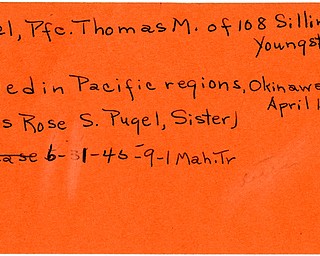 el, Pfc. Thomas M. of 108 Sillin
Youngst
ed in Pacific regions, Okinawa
April 1
s Rose S. Pugel, Sister)
ease 6-31-45-9-1 Mah. Tr